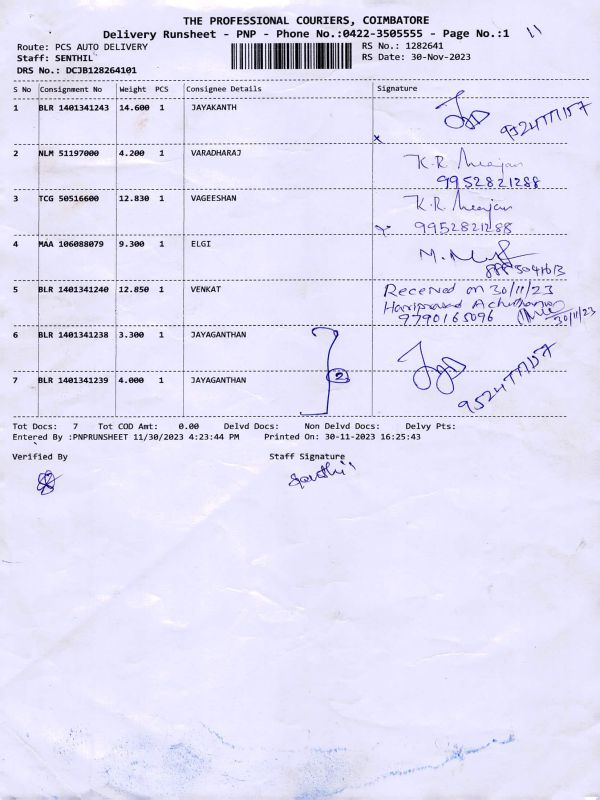 THE PROFESSIONAL COURIERS, COIMBATORE
Delivery Runsheet - PNP - Phone No.:0422-3505555 - Page No.:1 11
Route: PCS AUTO DELIVERY RS No.: 1282641
Staff: SENTHIL RS Date: 30-Nov-2023
DRS No.: DCJB128264101
S No Consignment No Weight PCS Consignee Details Signature
1 BLR 1401341243 14.600 1 JAYAKANTH
x 9524777157
2 NLM 51197000 4.200 1 VARADHARAJ K.R.
9952821288
3 TCG 50516600 12.830 1 VAGEESHAN K.R.
x 9952821288
4 MAA 106088079 9.300 1 ELGI M.
5 BLR 1401341240 12.850 1 VENKAT Received on 30/11/23
Hariprasad
9790165096 30/11/23
6 BLR 1401341238 3.300 1 JAYAGANTHAN
2
7 BLR 1401341239 4.000 1 JAYAGANTHAN 9524777157
Tot Docs: 7 Tot COD Amt: 0.00 Delvd Docs: Non Delvd Docs: Delvy Pts:
Entered By :PNPRUNSHEET 11/30/2023 4:23:44 PM Printed On: 30-11-2023 16:25:43
Verified By Staff Signature